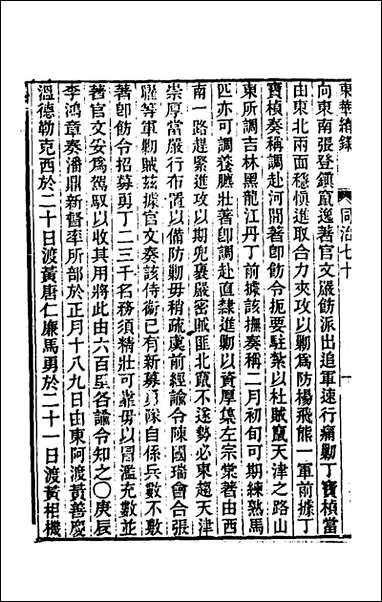 東華續錄 同治七十
向東南張登鎮竄逸著官文嚴飭派出追軍速行痛勦丁寶楨當
由東北兩面穩愼進取合力夾攻以勦爲防楊飛熊一軍前據丁
寶楨奏稱調赴河間著卽飭令扼要駐紮以杜賊竄天津之路山
東所調吉林黑龍江丹丁前據該撫奏稱二月初旬可期練熟馬
匹亦可調養臕壯著卽調赴直隸進勦以資厚集左宗棠著由西
南一路趕緊進攻以期兜裹嚴密賊匪北竄不遂勢必東趨天津
崇厚當嚴行布置以備防勦毋稍疏虞前經諭令陳國瑞會合張
曜等軍勦賊玆據官文奏該侍衞已有新募勇隊自係兵數不敷
著卽飭令招募勇丁二三千名務須精壯可靠毋以冒濫充數並
著官文妥爲駕馭以收其用將此由六百里各諭令知之〇庚辰
李鴻章奏潘鼎新督率所部於正月十八九日由東阿渡黃善慶
溫德勒克西於二十日渡黃唐仁廉馬勇於二十一日渡黃相機